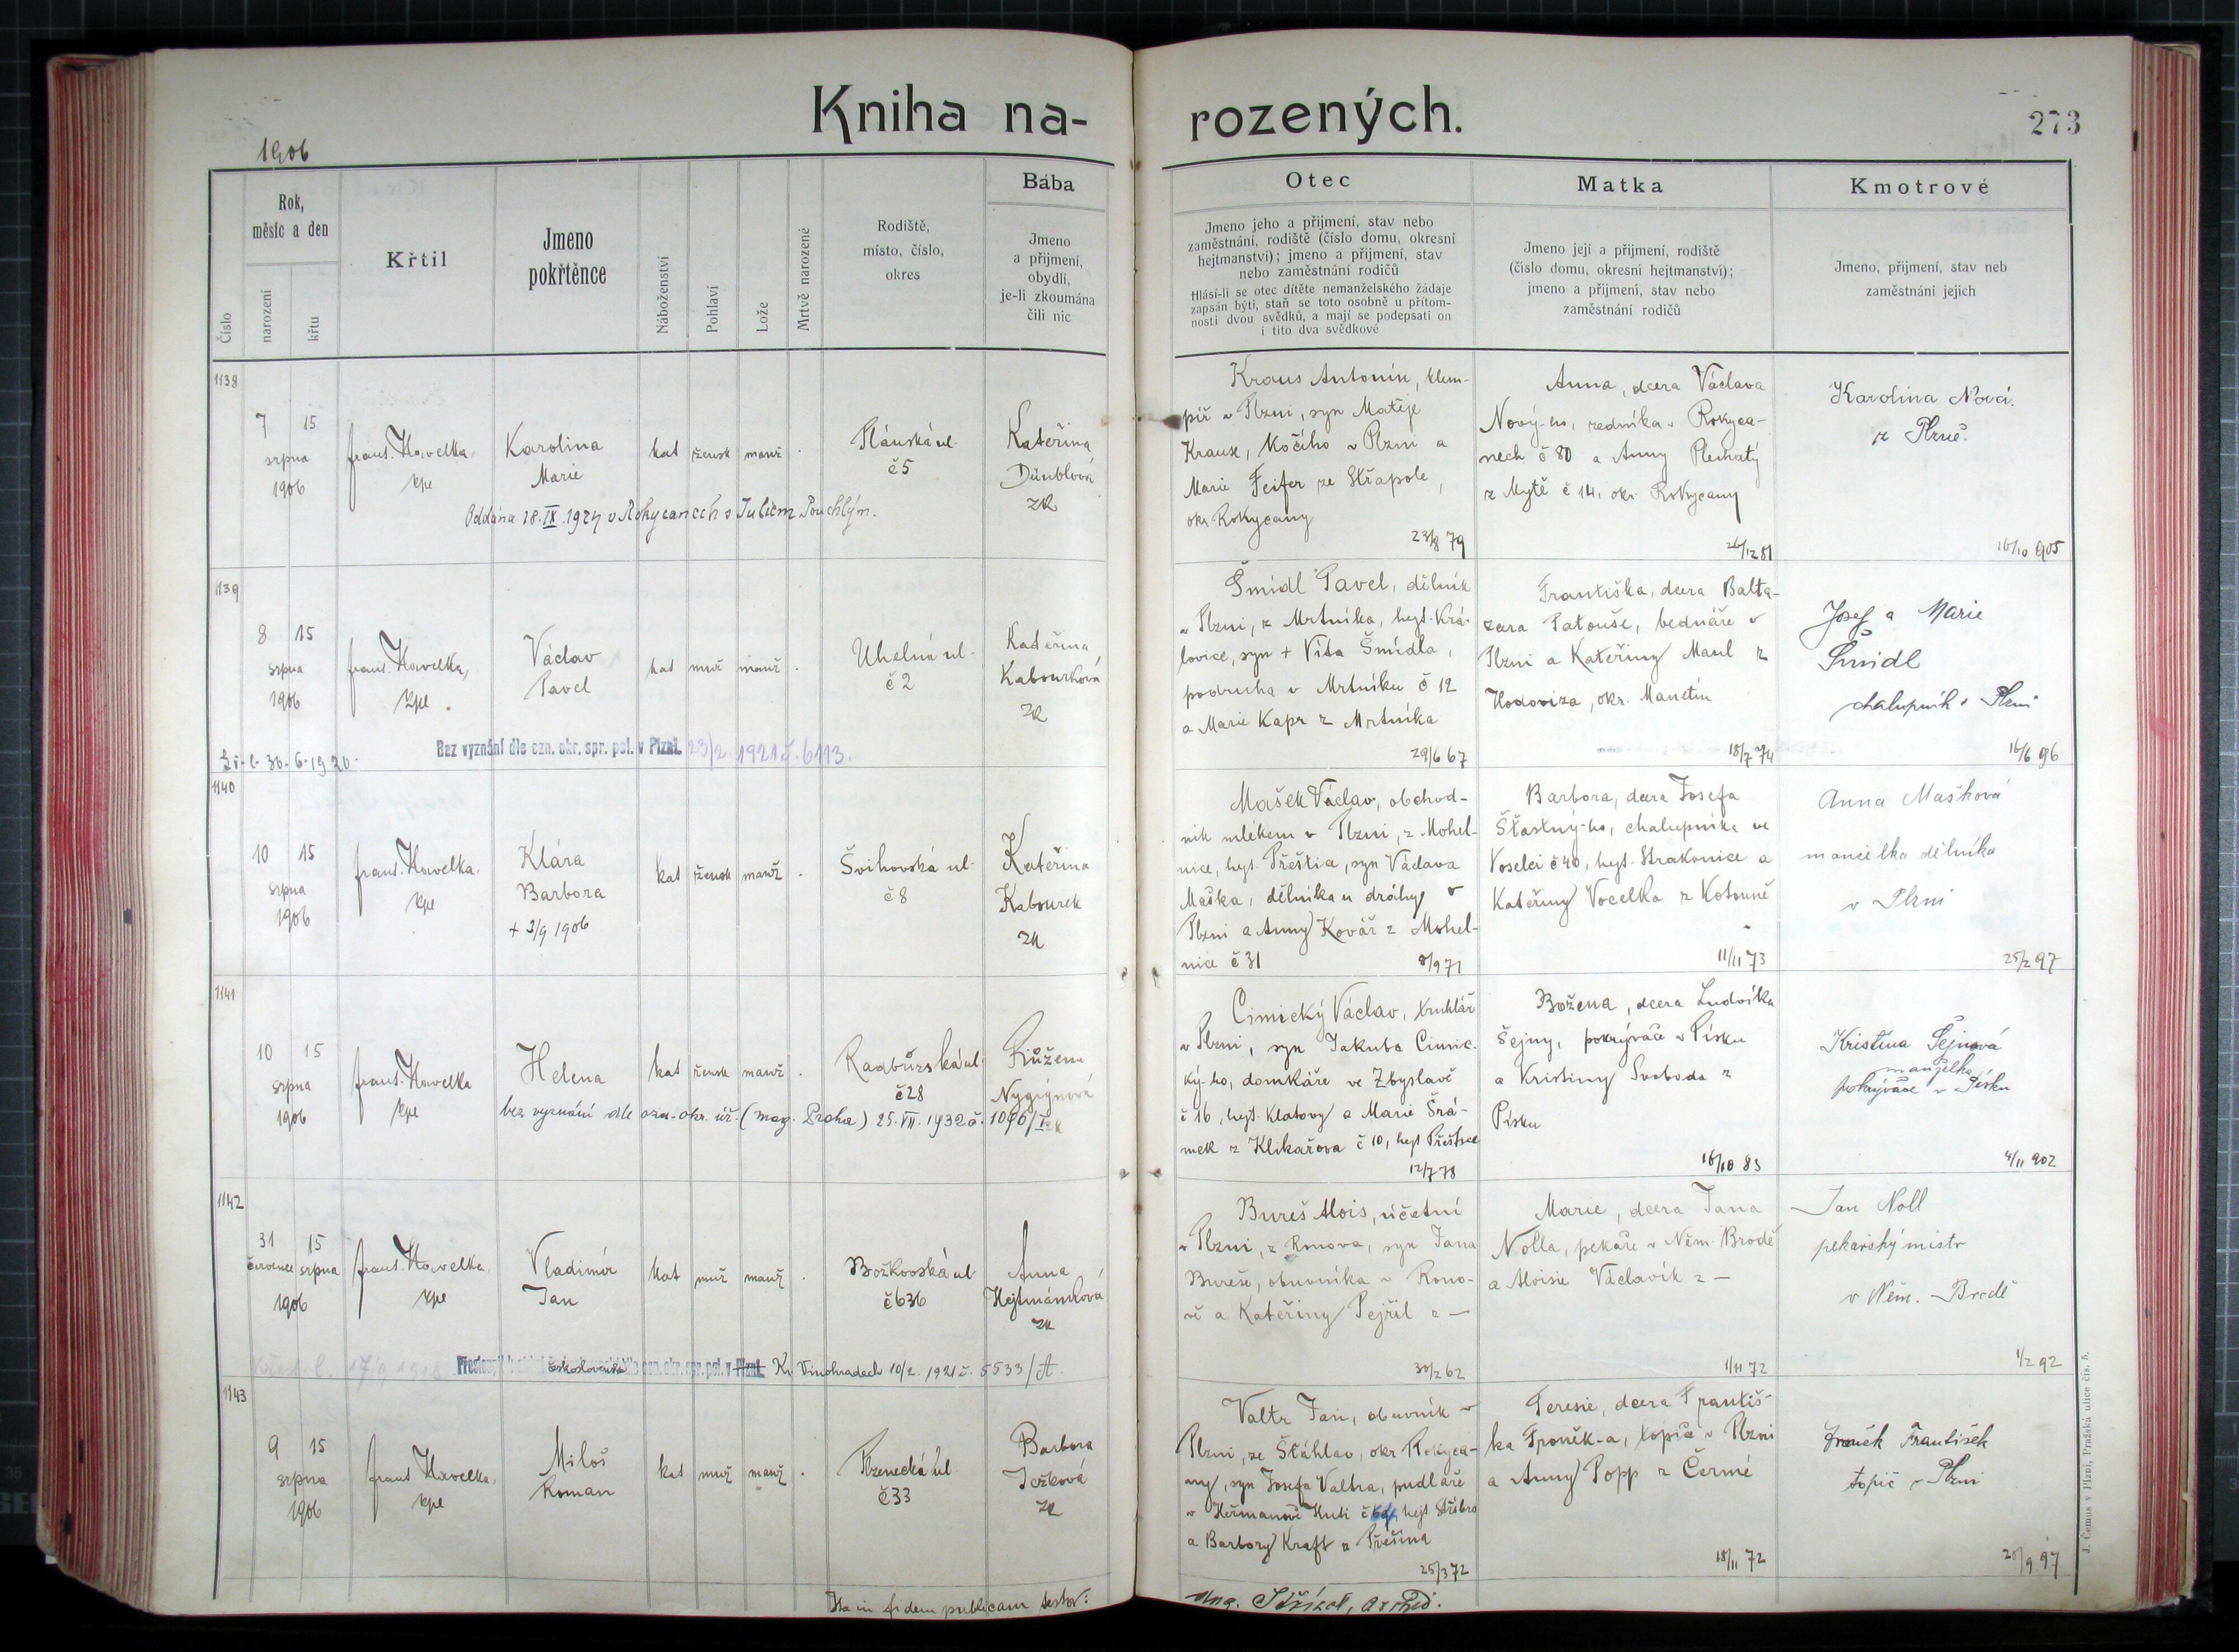 Kniha na-
rozených.
273
1906
Číslo
Rok,
měsíc a den
narození
křtu
Křtil
Jmeno
pokřtěnce
Náboženství
Pohlaví
Lože
Mrtvě narozené
Rodiště,
místo, číslo,
okres
Bába
Jmeno
a přijmení,
obydlí,
je-li zkoumána
čili nic
Otec
Jmeno jeho a přijmení, stav nebo
zaměstnání, rodiště (číslo domu, okresní
hejtmanství); jmeno a přijmení, stav
nebo zaměstnání rodičů
Hlásí-li se otec dítěte nemanželského žádaje
zapsán býti, staň se toto osobně u přítom-
nosti dvou svědků, a mají se podepsati on
i tito dva svědkové
Matka
Jmeno její a přijmení, rodiště
(číslo domu, okresní hejtmanství);
jmeno a přijmení, stav nebo
zaměstnání rodičů
Kmotrové
Jmeno, přijmení, stav neb
zaměstnání jejich
1138
7 15
srpna
1906
frant. Havelka,
kpe
Karolina
Marie
kat žensk manž .
Plánská ul.
č 5
Kateřina
Däublová
zk
Oddána 28.IX.1924 v Rokycanech s Juliem Pouchlým.
Kraus Antonín, klem-
píř v Plzni, syn Matěje
Krause, kočího v Plzni a
Marie Feifer ze Střapole,
okr. Rokycany
23/8 79
Anna, dcera Václava
Nový-ho, zedníka v Rokyca-
nech č 80 a Anny Plechatý
z Mýtě č 14, okr. Rokycany
26/12 81
Karolina Nová.
z Plzně.
16/10 905
1139
8 15
srpna
1906
frant. Havelka,
kpe
Václav
Pavel
kat muž manž .
Uhelná ul.
č 2
Kateřina
Kabourková
zk
30.6.1920.
Bez vyznání dle ozn. okr. spr. pol. v Plzni. 23/2 1921 č. 6113.
Šmídl Pavel, dělník
v Plzni, z Mrtníka, hejt. Krá-
lovice, syn + Víta Šmídla,
podruha v Mrtníku č 12
a Marie Kapr z Mrtníka
29/6 67
Františka, dcera Balta-
zara Patouše, bednáře v
Plzni a Kateřiny Maul z
Hodoviza, okr. Manetín
18/7 74
Josef a Marie
Šmídl
chalupník v Plzni
16/6 96
1140
10 15
srpna
1906
frant. Havelka,
kpe
Klára
Barbora
+ 3/9 1906
kat žensk manž .
Švihovská ul.
č 8
Kateřina
Kabourek
zk
Mašek Václav, obchod-
ník mlékem v Plzni, z Mohel-
nice, hejt. Přeštice, syn Václava
Maška, dělníka u dráhy v
Plzni a Anny Kovář z Mohel-
nice č 31
8/9 71
Barbora, dcera Josefa
Šťastný-ho, chalupníka ve
Voselci č 40, hejt. Strakonice a
Kateřiny Vocelka z Kotouně
11/11 73
Anna Mašková
manželka dělníka
v Plzni
25/2 97
1141
10 15
srpna
1906
frant. Havelka
kpe
Helena
kat žensk manž .
Radbuzská ul.
č 28
Růžena
bez vyznání dle ozn. okr. úř. (mag. Praha) 25.VII.1932 č. 1090/I
Cimický Václav, truhlář
v Plzni, syn Jakuba Cimic-
ký-ho, domkáře ve Zbyslavě
č 16, hejt. Klatovy a Marie Šrá-
mek z Klikařova č 10, hejt Přeštice
12/7 78
Božena, dcera Ludvíka
Šejny, pokrývače v Písku
a Kristiny Svoboda z
Písku
16/10 83
Kristina Šejnová
manželka
pokrývače v Písku
4/11 902
1142
31 15
července srpna
1906
frant. Havelka,
kpe
Vladimír
Jan
kat muž manž .
Božkovská ul
č 636
Anna
Hejtmánková
zk
17/9 1918
československé
ozn. okr. spr. pol. v Plzni. Kr. Vinohradech 10/2. 1921 č. 5533/A.
Bureš Alois, účetní
v Plzni, z Ronova, syn Jana
Bureše, obuvníka v Rono-
vě a Kateřiny Pejřil z —
30/2 62
Marie, dcera Jana
Nolla, pekaře v Něm. Brodě
a Aloisie Václavík z —
1/11 72
Jan Noll
pekařský mistr
v Něm. Brodě
1/2 92
1143
9 15
srpna
1906
frant Havelka,
kpe
Miloš
Roman
kat muž manž .
Plzenecká ul.
č 33
Barbora
Ježková
zk
Valtr Jan, obuvník v
Plzni, ze Štáhlav, okr. Rokyca-
ny, syn Josefa Valtra, pudláře
v Heřmanově Huti č, hejt Stříbro
a Barbory Kraft z
25/3 72
Terezie, dcera Františ-
ka Froněk-a, topiče v Plzni
a Anny Popp z Čermé
18/11 72
Froněk František
topič v Plzni
20/9 97
Ita in fidem publicam testor:
J. Černus v Plzni, Pražská ulice čís. 5.